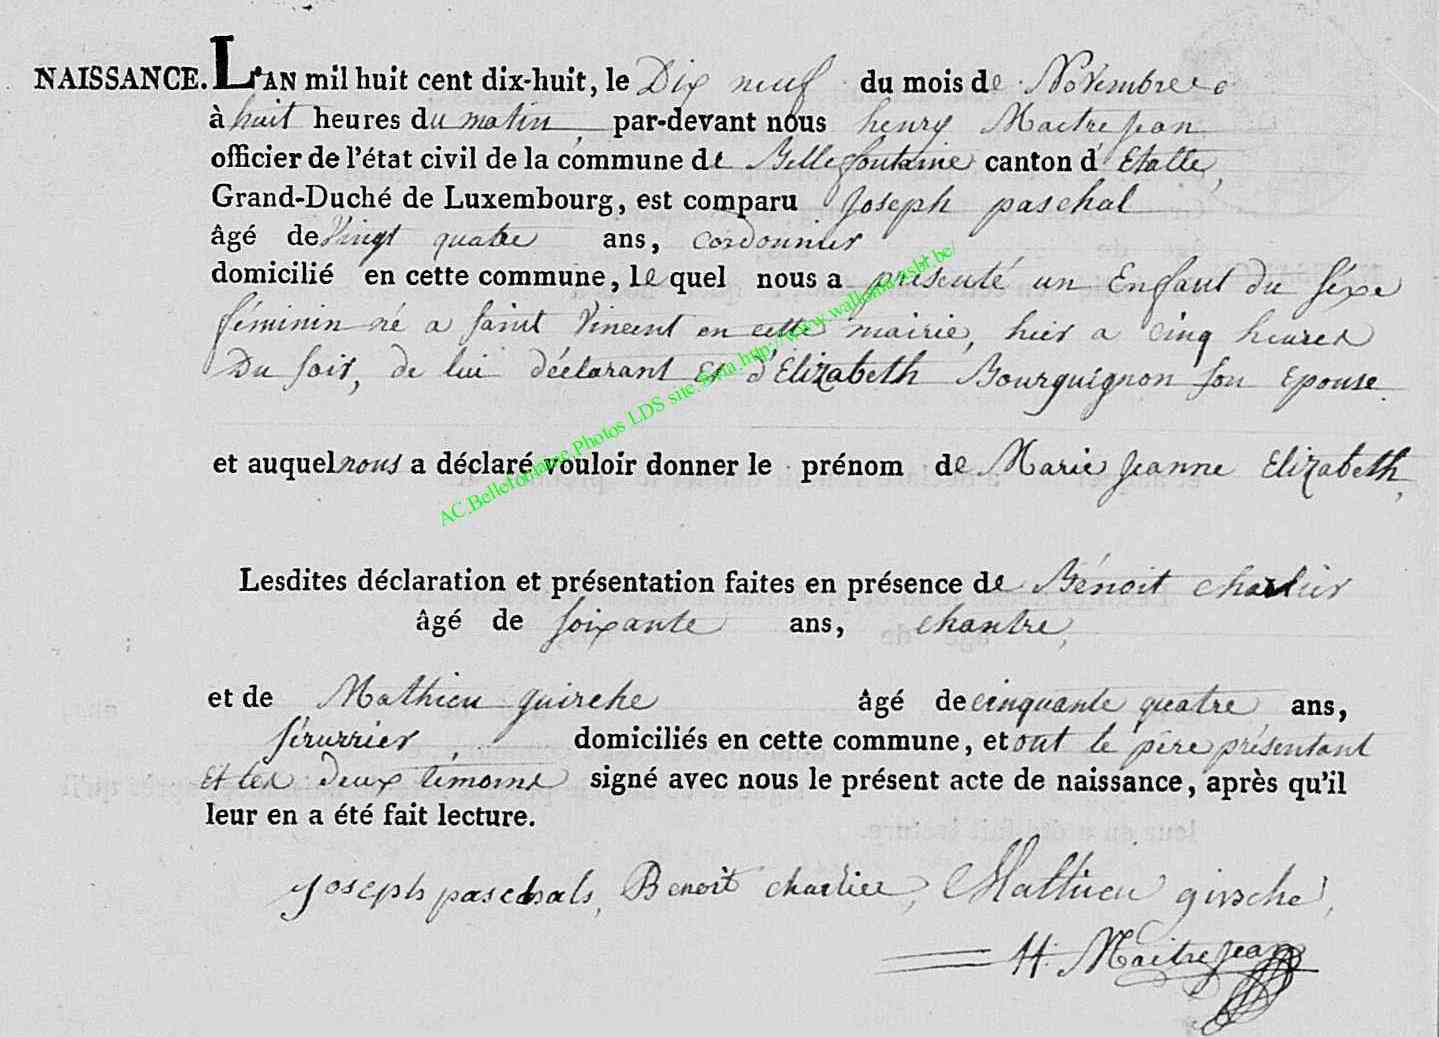 NAISSANCE. L'AN mil huit cent dix-huit, le Dix neuf du mois de Novembre
à huit heures du matin, par-devant nous henry Maitrejean
officier de l'état civil de la commune de Bellefontaine canton d'Etalle,
Grand-Duché de Luxembourg, est comparu Joseph paschal
âgé de Vingt quatre ans, cordonnier
domicilié en cette commune, lequel nous a présenté un Enfant du séxe
féminin né a saint Vincent en cette mairie, hier a cinq heures
Du soir, de lui déclarant et d'Elizabeth Bourguignon son Epouse
et auquel nous a déclaré vouloir donner le prénom de Marie Jeanne Elizabeth,
Lesdites déclaration et présentation faites en présence de Bénoit charlier
âgé de soixante ans, chantre,
et de Mathieu guirche âgé de cinquante quatre ans,
sérurrier, domiciliés en cette commune, et ont le père présentant
Et les deux témoins signé avec nous le présent acte de naissance, après qu'il
leur en a été fait lecture.
Joseph paschals, Benoit charlier, Mathieu girsche,
H. Maitrejean
AC.Bellefontaine Photos LDS site Sota http://www.wallonia.isbt.be/